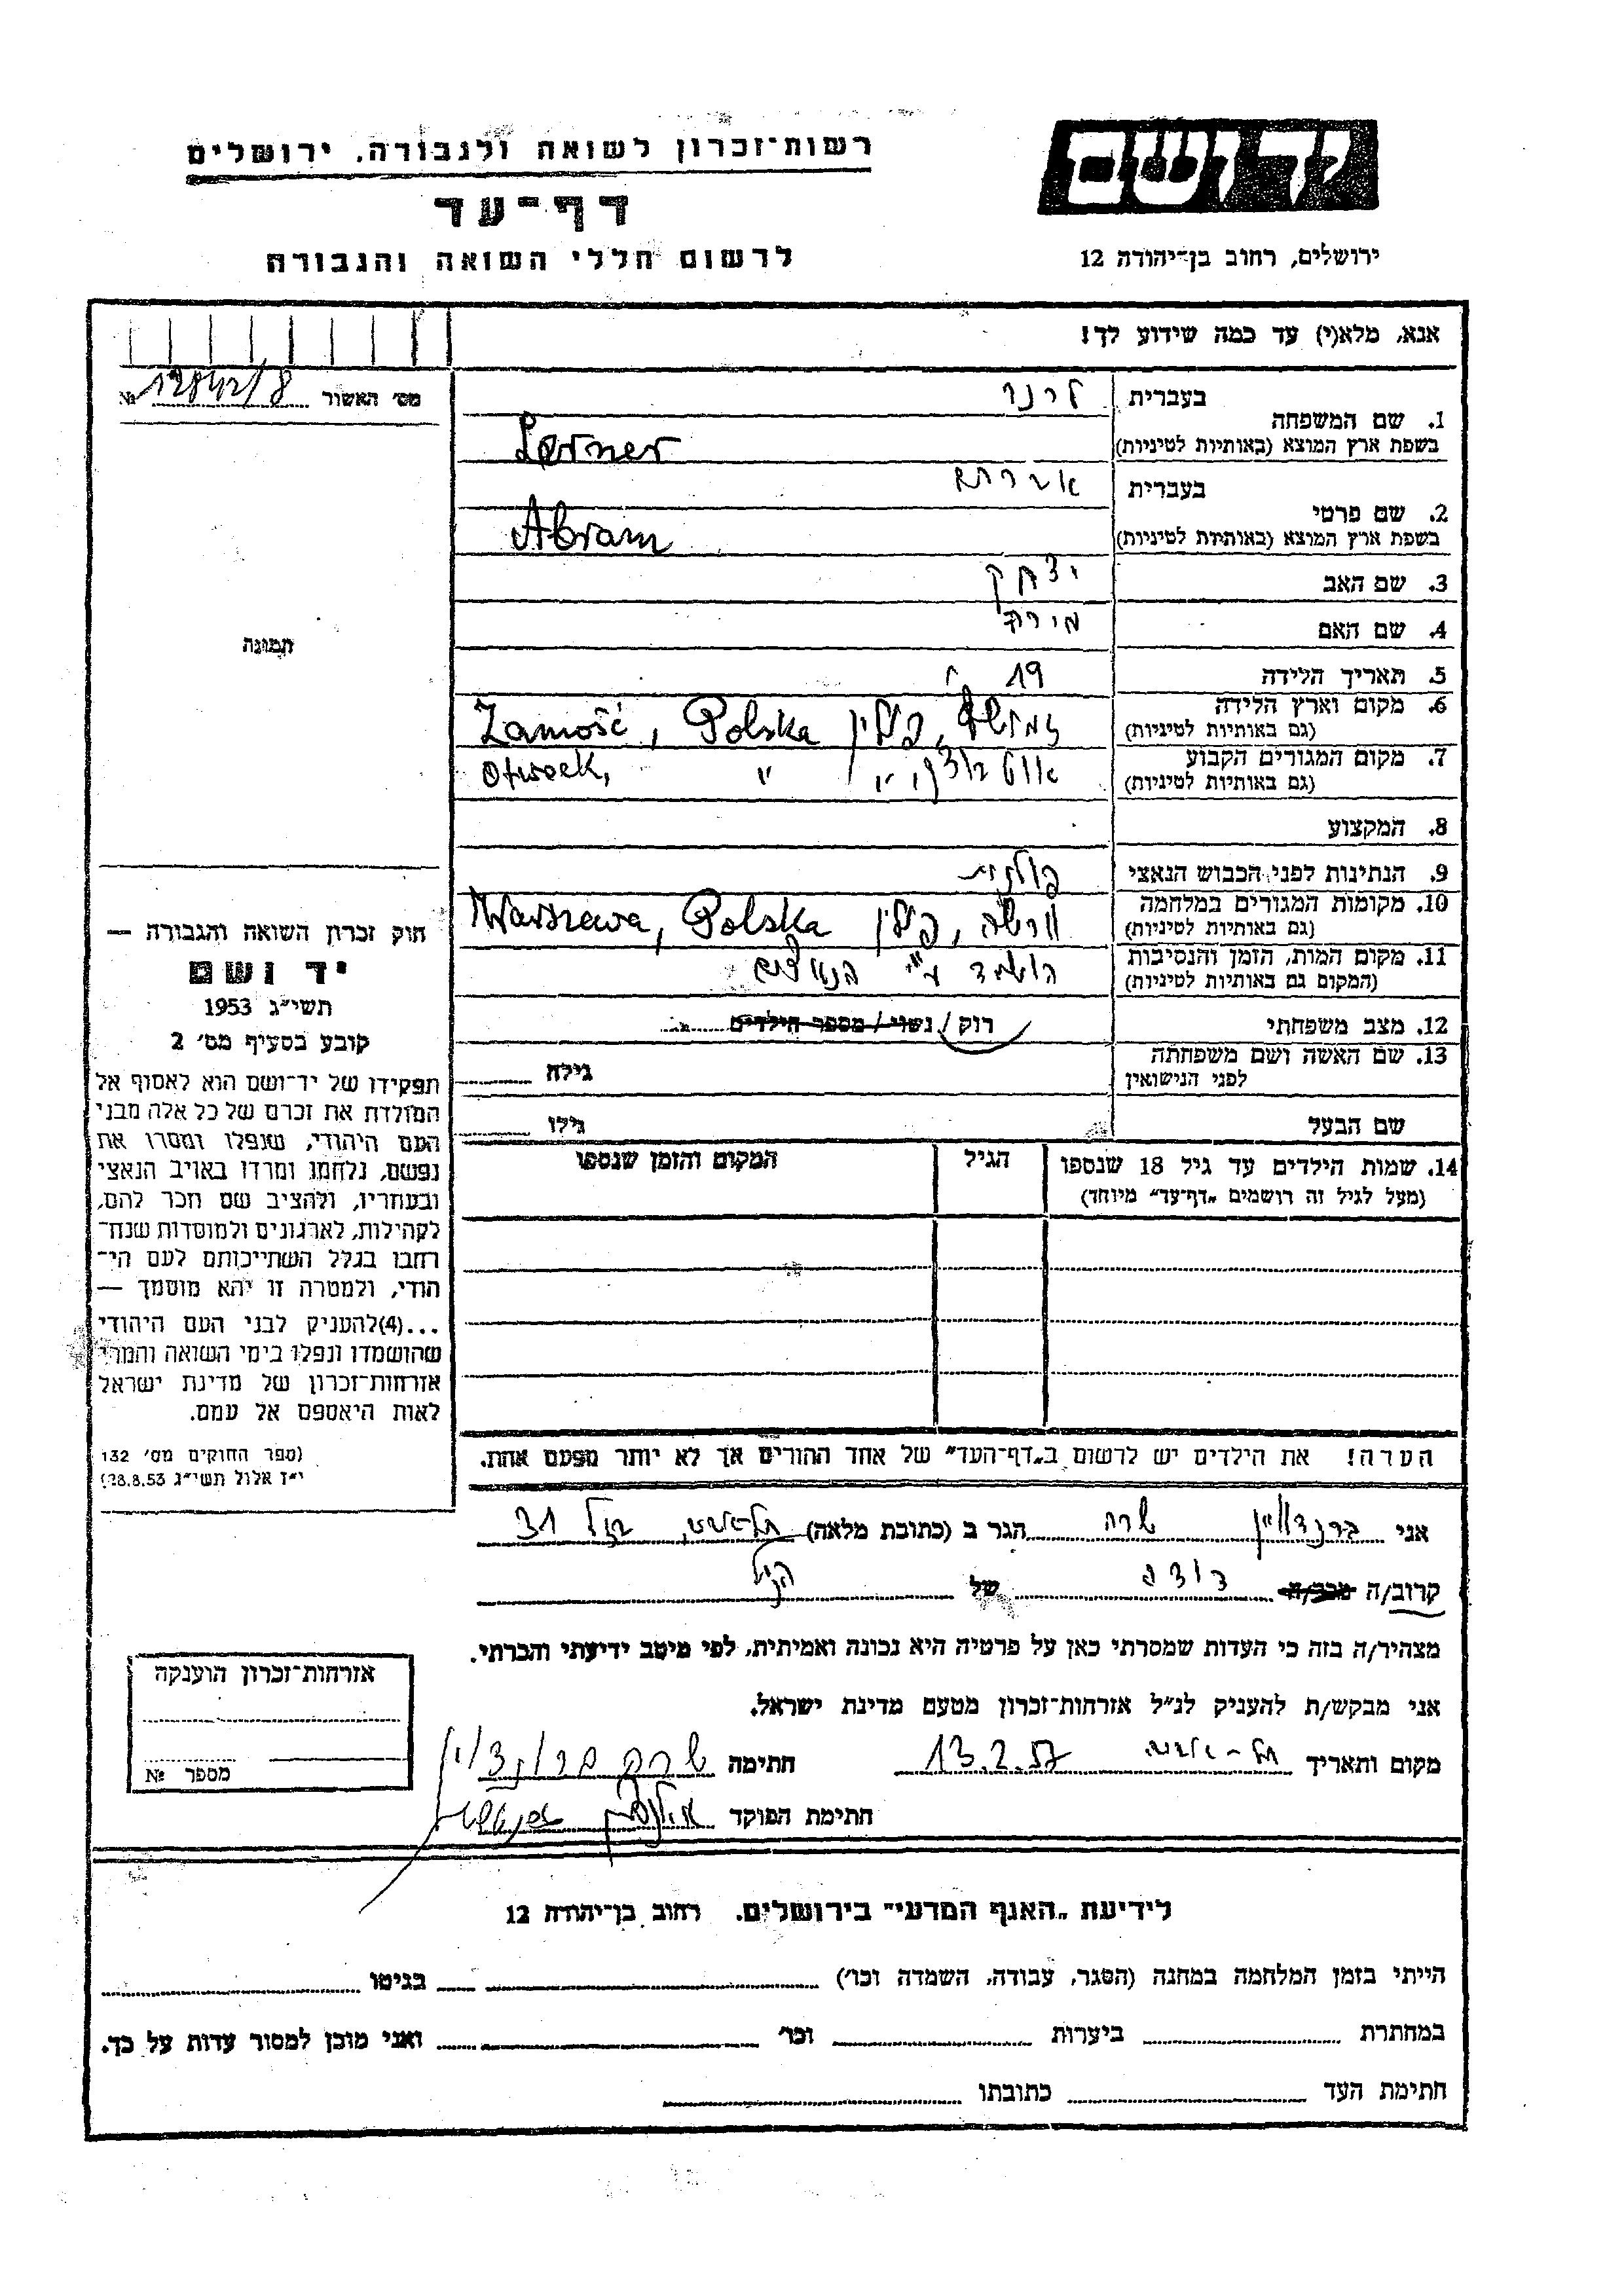 רשות־זכרון לשואה ולגבורה, ירושלים
יד ושם
דף־עד
לרשום חללי השואה והגבורה
ירושלים, רחוב בן־יהודה 12
אנא, מלא(י) עד כמה שידוע לך!
מס׳ האשור 12842/8 №
1. שם המשפחה
בעברית לרנר
בשפת ארץ המוצא (באותיות לטיניות) Lerner
2. שם פרטי
בעברית אברהם
בשפת ארץ המוצא (באותיות לטיניות) Abram
3. שם האב יצחק
4. שם האם מירה
תמונה
5. תאריך הלידה 19
6. מקום וארץ הלידה
(גם באותיות לטיניות) פולין Zamość, Polska
7. מקום המגורים הקבוע
(גם באותיות לטיניות) אוטבוצק, " Otwock, "
8. המקצוע
9. הנתינות לפני הכבוש הנאצי פולנית
10. מקומות המגורים במלחמה
(גם באותיות לטיניות) ורשה, פולין Warszawa, Polska
11. מקום המות, הזמן והנסיבות
(המקום גם באותיות לטיניות) הושמד ע"י הנאצים
12. מצב משפחתי רוק / נשוי / מספר הילדים
13. שם האשה ושם משפחתה
לפני הנישואין גילה
שם הבעל גילו
14. שמות הילדים עד גיל 18 שנספו
(מעל לגיל זה רושמים „דף־עד״ מיוחד)
הגיל
המקום והזמן שנספו
חוק זכרון השואה והגבורה —
יד ושם
תשי״ג 1953
קובע בסעיף מס׳ 2
תפקידו של יד־ושם הוא לאסוף אל
המולדת את זכרם של כל אלה מבני
העם היהודי, שנפלו ומסרו את
נפשם, נלחמו ומרדו באויב הנאצי
ובעוזריו, ולהציב שם וזכר להם,
לקהילות, לארגונים ולמוסדות שנח־
רבו בגלל השתייכותם לעם הי־
הודי, ולמטרה זו יהא מוסמך —
...(4)להעניק לבני העם היהודי
שהושמדו ונפלו בימי השואה והמרי
אזרחות־זכרון של מדינת ישראל
לאות היאספם אל עמם.
(ספר החוקים מס׳ 132
י״ז אלול תשי״ג 28.8.53)
הערה! את הילדים יש לרשום ב„דף־העד״ של אחד ההורים אך לא יותר מפעם אחת.
אני שרה הגר ב (כתובת מלאה) תל־אביב, 31
קרוב/ה מכר/ה דודה של הנ"ל
מצהיר/ה בזה כי העדות שמסרתי כאן על פרטיה היא נכונה ואמיתית, לפי מיטב ידיעתי והכרתי.
אני מבקש/ת להעניק לנ״ל אזרחות־זכרון מטעם מדינת ישראל.
מקום ותאריך תל-אביב 13.2.57 חתימה שרה
חתימת הפוקד
אזרחות־זכרון הוענקה
מספר №
לידיעת „האגף המדעי״ בירושלים, רחוב בן־יהודה 12
הייתי בזמן המלחמה במחנה (הסגר, עבודה, השמדה וכו׳) בגיטו
במחתרת ביערות וכו׳ ואני מוכן למסור עדות על כך.
חתימת העד כתובתו